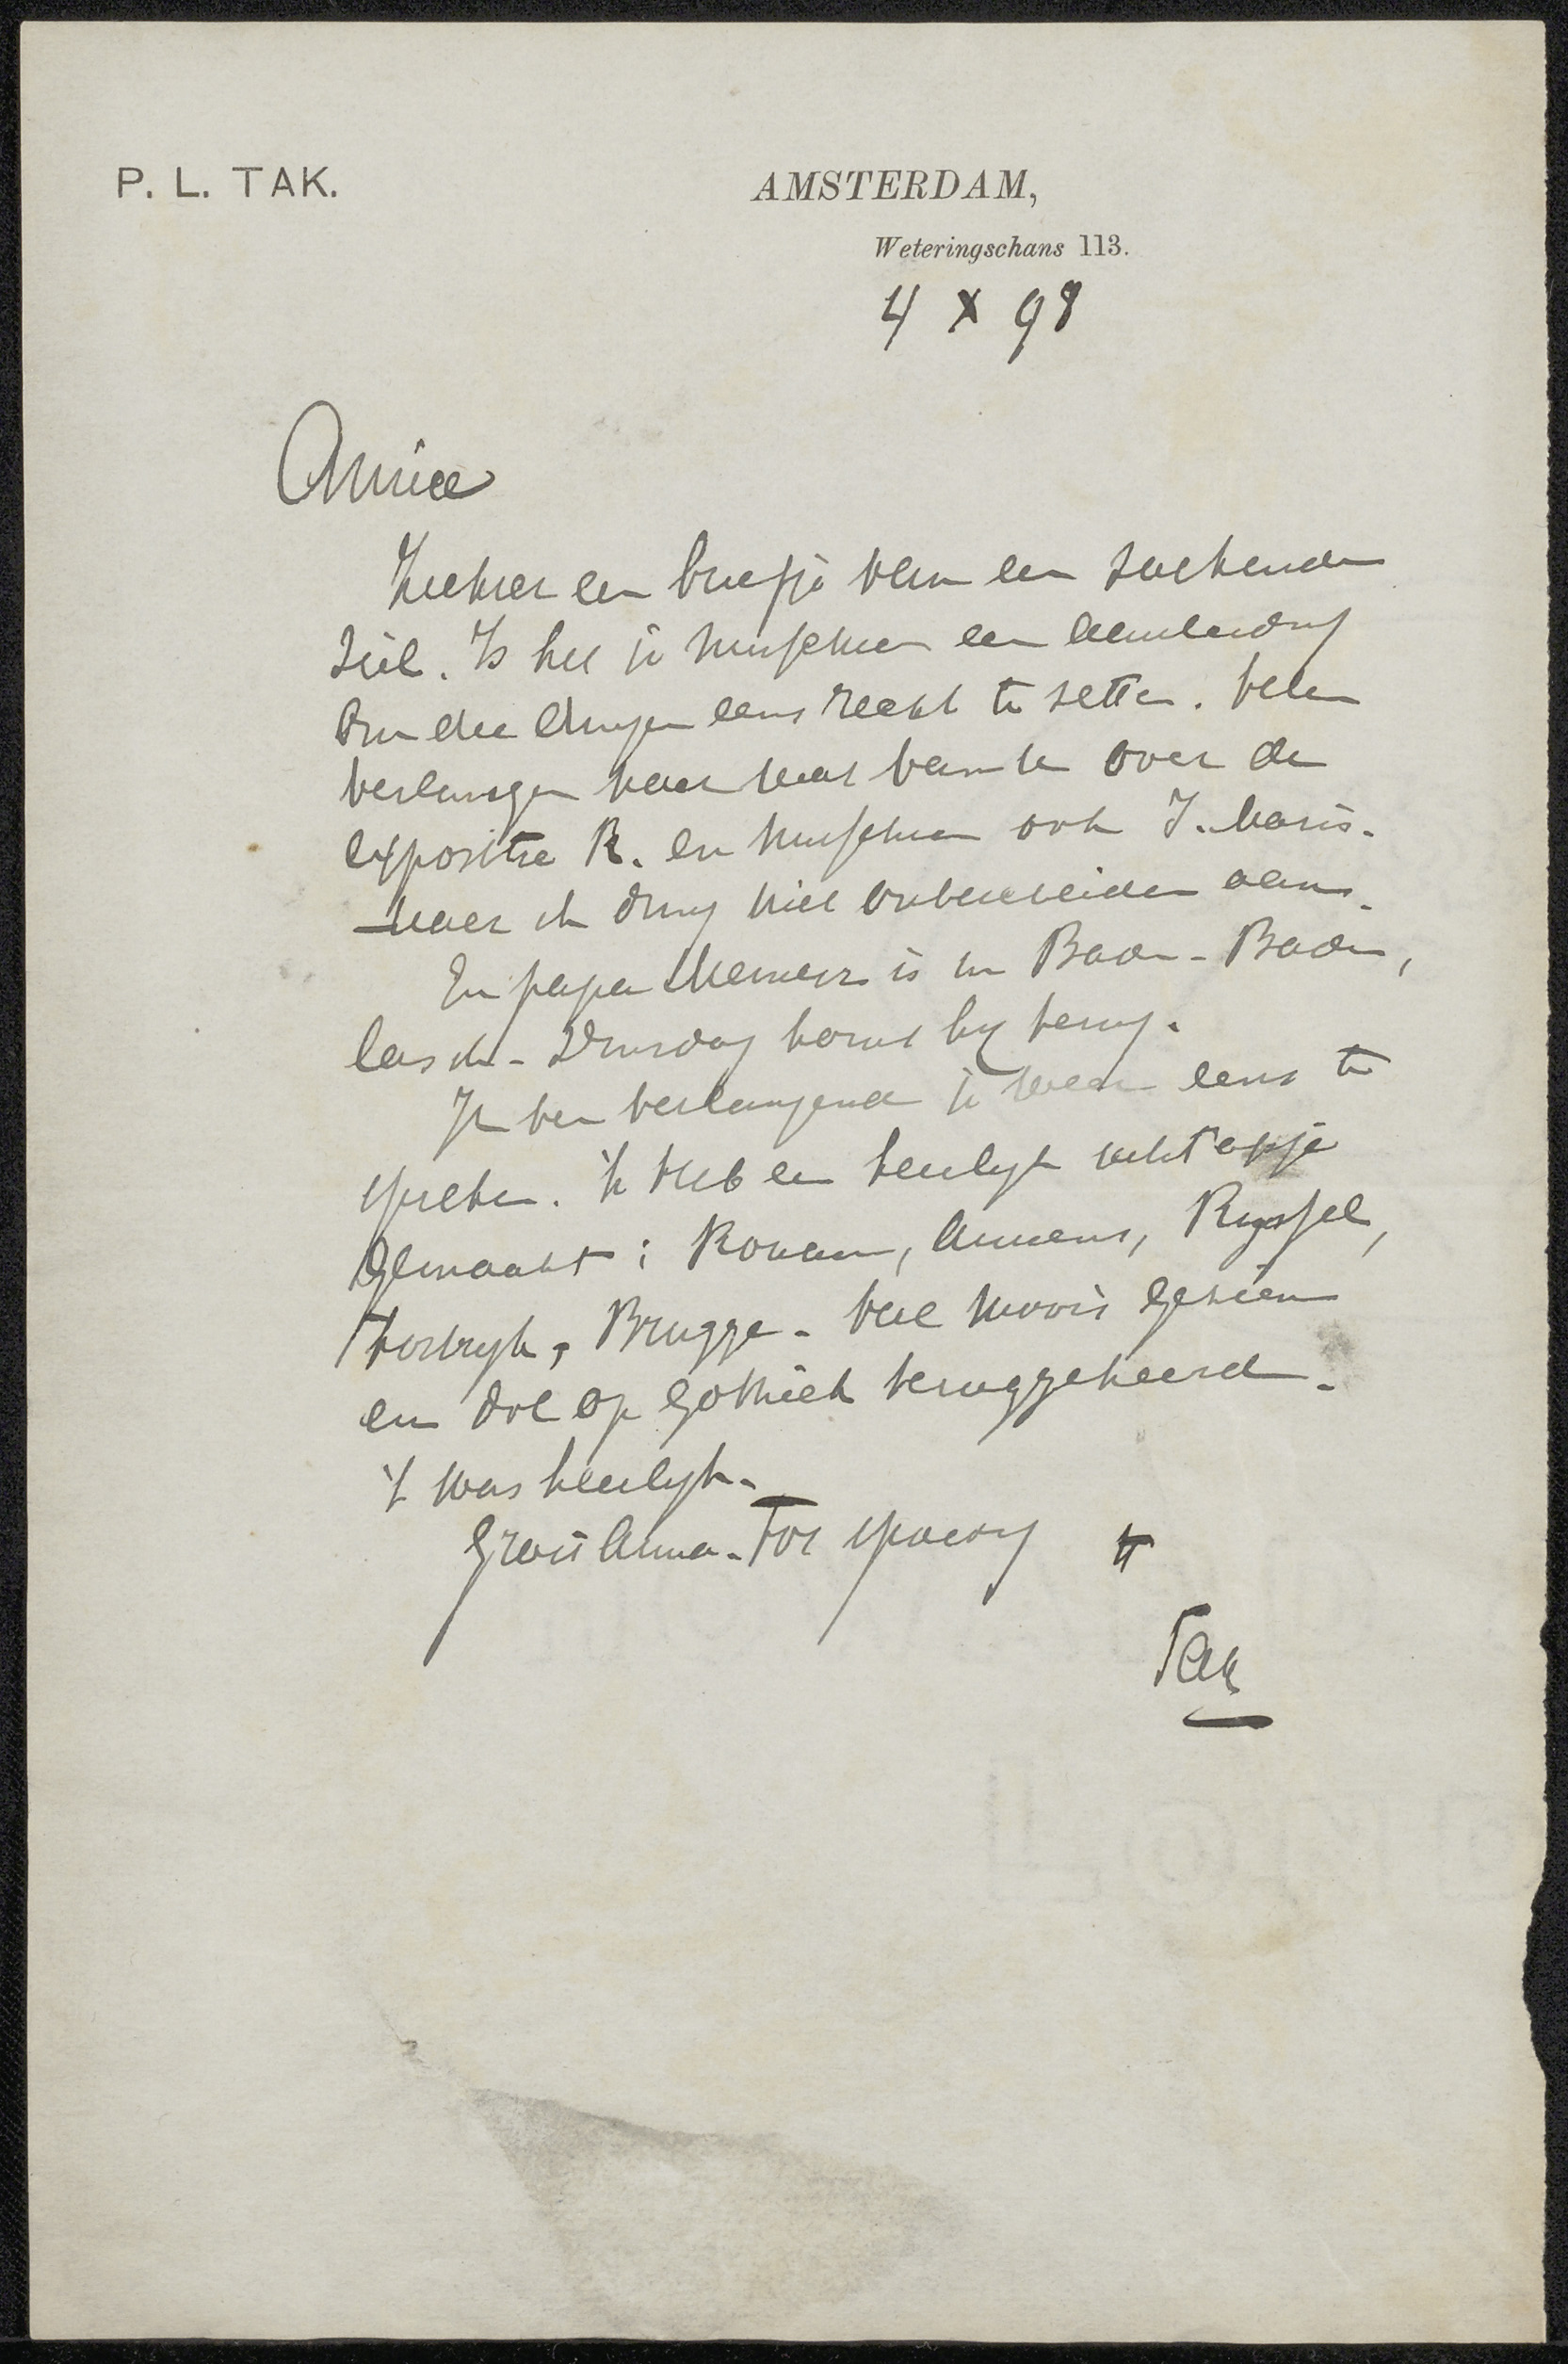 P. L. TAK.
AMSTERDAM,
Weteringschans 113.
4 X 98
Amice
Hiehier een briefje van een zoekende
ziel. Is het je misschien een aanleiding
om die dingen eens recht te zetten. Velen
verlangen naar wat van je over de
expositie R. en misschien ook J. Maris.
Maar ik dring niet onbescheiden aan.
En papa is in Baden-Baden,
las ik. Dinsdag komt hij terug.
Ik ben verlangend je weer eens te
spreken. 'k Heb een heerlijk uitstapje
gemaakt: Rouaan, Amiens, Ryssel,
Kortryk, Brugge. Veel moois gezien
en dol op Gothiek teruggekeerd.
't Was heerlijk.
Groet Anna. Tot spoedig tt
Tak